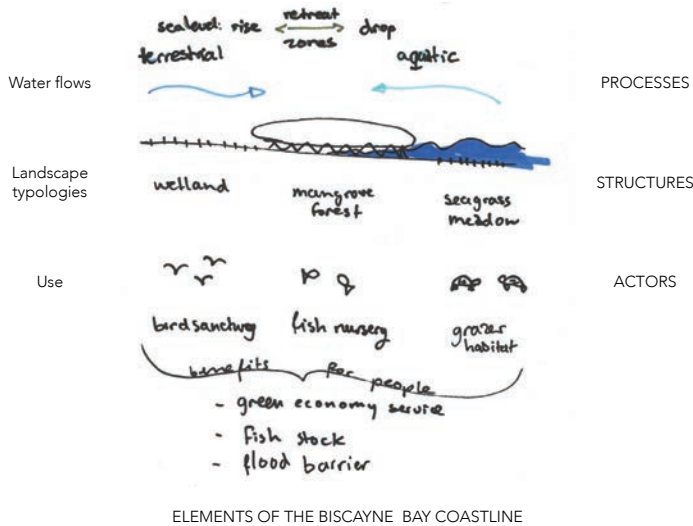 retreat
sealevel: rise drop
zones
terrestrial aquatic
Water flows PROCESSES
Landscape typologies STRUCTURES
welland mangrove forest seagrass meadow
Use ACTORS
bird sanctury fish nursery grazer habitat
benefits for people
- green economy service
- fish stock
- flood barrier
ELEMENTS OF THE BISCAYNE BAY COASTLINE